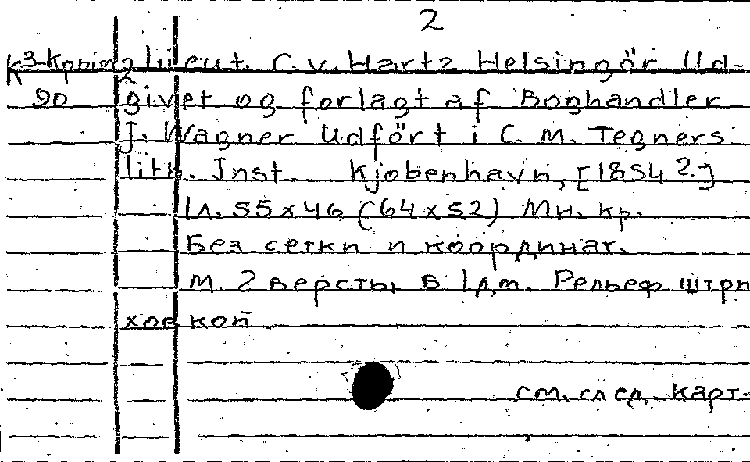 2
К3-Копинг lieut. C. v. Hartz Helsingör Ud-
90 givet og forlagt af Boghandler
J. Wagner Udfört i C. M. Tegners
lith. Inst. Kjobenhavn, [1854?.]
1л. 55x46 (64x52) Мн. кр.
Без сетки и координат.
М. 2 версты в 1дм. Рельеф штри
ховкой
см. след. карт-